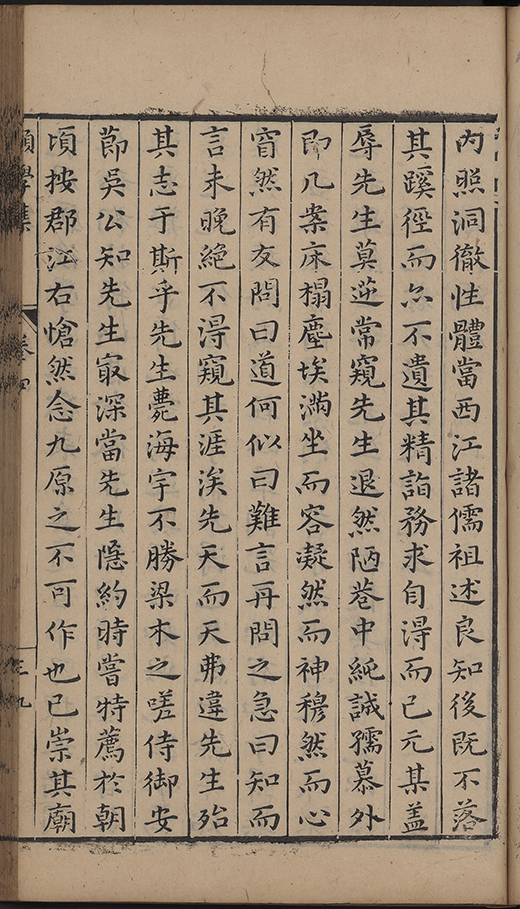 內照洞徹性體當西江諸儒祖述良知後既不落
其蹊徑而亦不遺其精詣務求自得而已元某盖
辱先生莫逆常窺先生退然陋巷中純誠孺慕外
即几案床榻塵埃滿坐而容凝然而神穆然而心
窅然有友問曰道何似曰難言再問之急曰知而
言未晚絕不得窺其涯涘先天而天弗違先生殆
其志于斯乎先生薨海宇不勝梁木之嗟侍御安
節吳公知先生㝡深當先生隱約時嘗特薦於朝
頃按郡江右愴然念九原之不可作也已崇其廟
願學集
卷四
三九